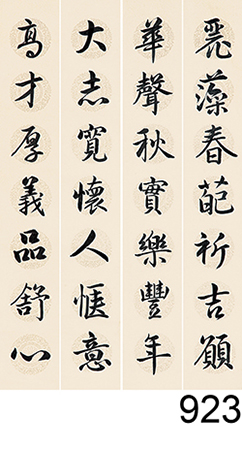 麗藻春葩祈吉願
華聲秋實樂豐年
大志寬懷人愜意
高才厚義品舒心
923